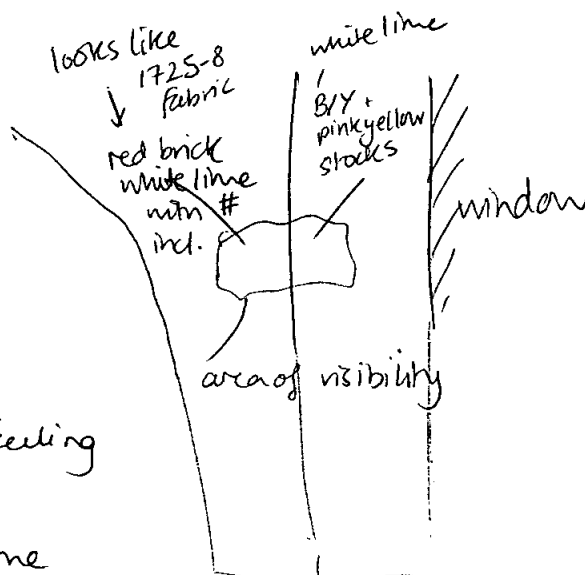 looks like
1725-8
fabric
red brick
white lime
with #
incl.
white lime
B/Y +
pinkyellow
stocks
window
area of visibility
ceiling